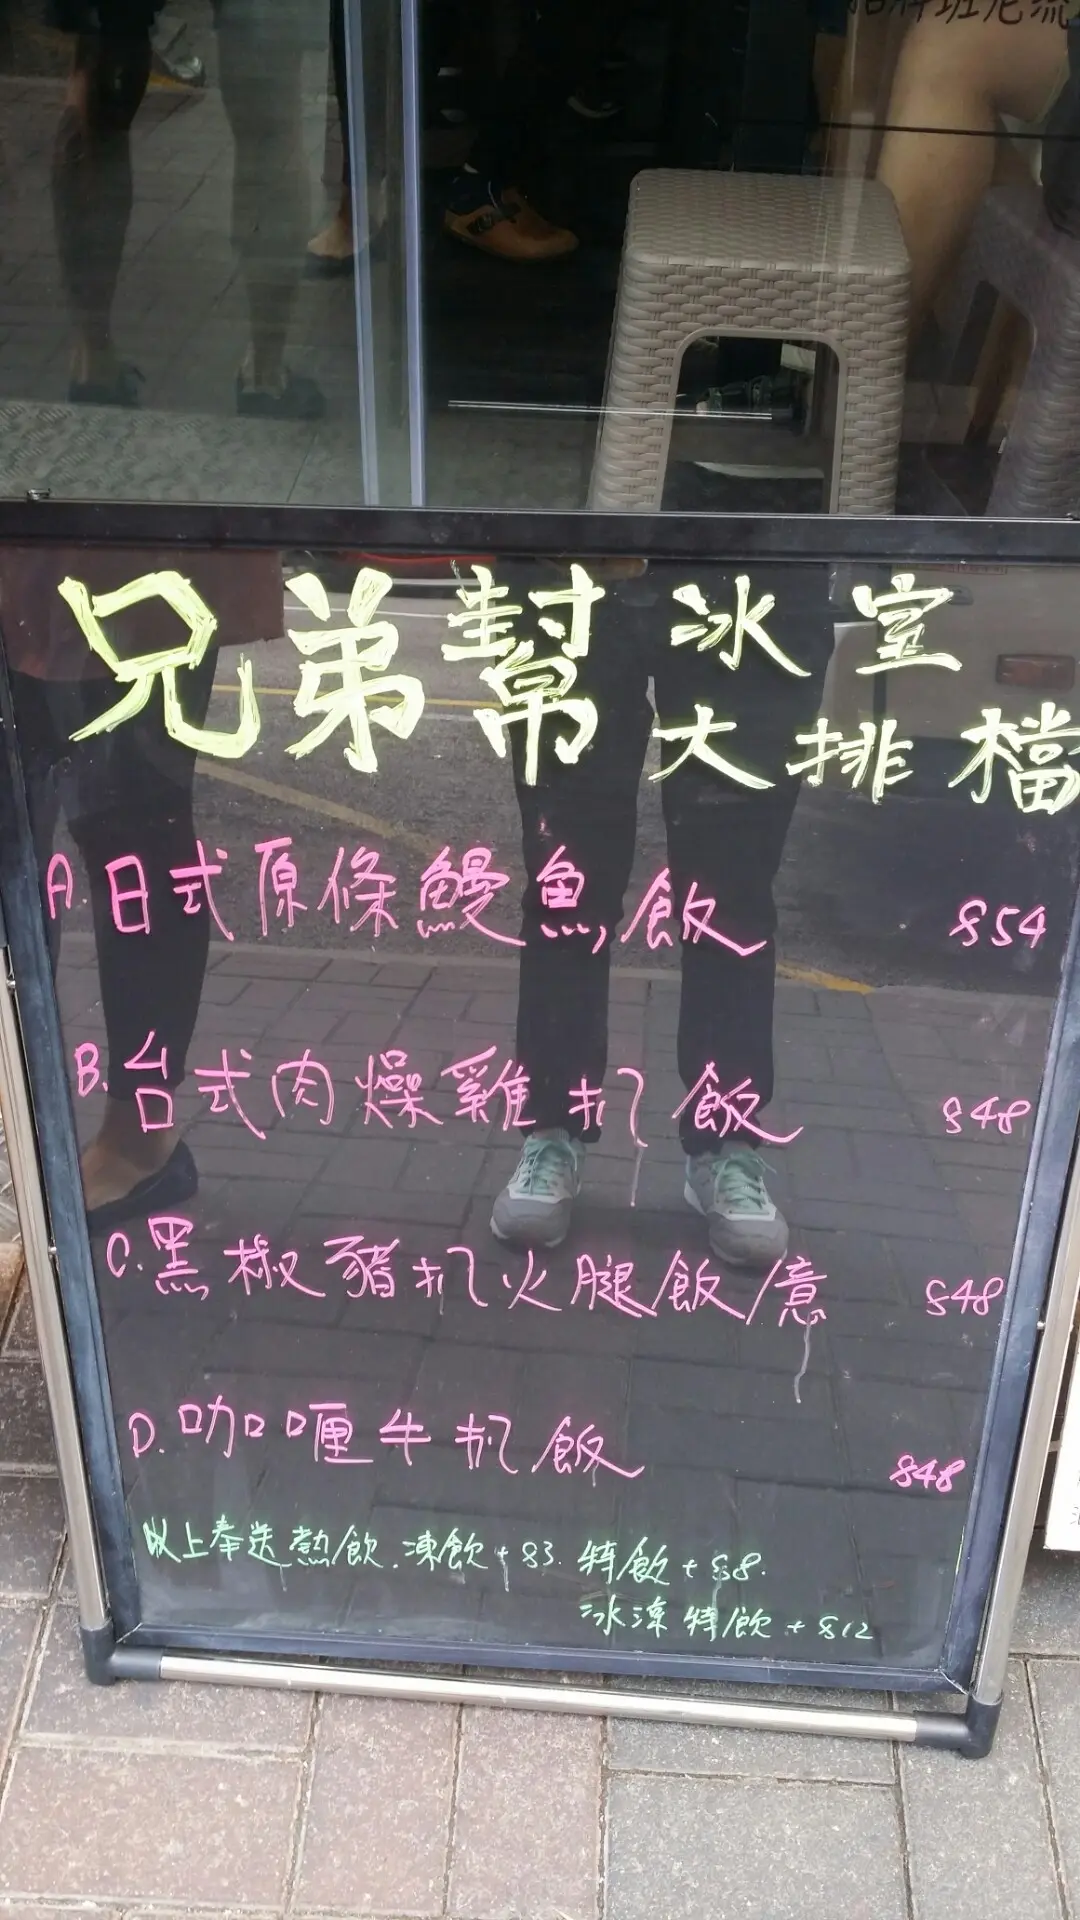 兄弟幫 冰室
大排檔
A. 日式原條鰻魚飯 $54
B. 台式肉燥雞扒飯 $48
C. 黑椒豬扒火腿飯/意 $48
D. 咖喱牛扒飯 $48
以上奉送熱飲.凍飲+$3. 特飲+$8.
冰涼特飲+$12